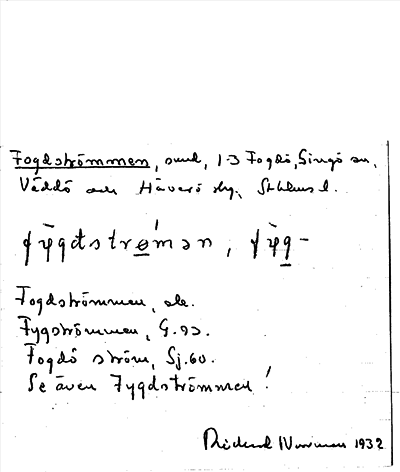 Fogdströmmen, sund, 1-3 Fogdö, Singö sn,
Väddö och Häverö skg, Sthlms l.
fỳgdstrømən, fỳg-
Fogdströmmen, ek.
Fygströmmen, G.93.
Fogdö ström, Sj.60.
Se även Fygdströmmen!
Rickard Norrman 1932